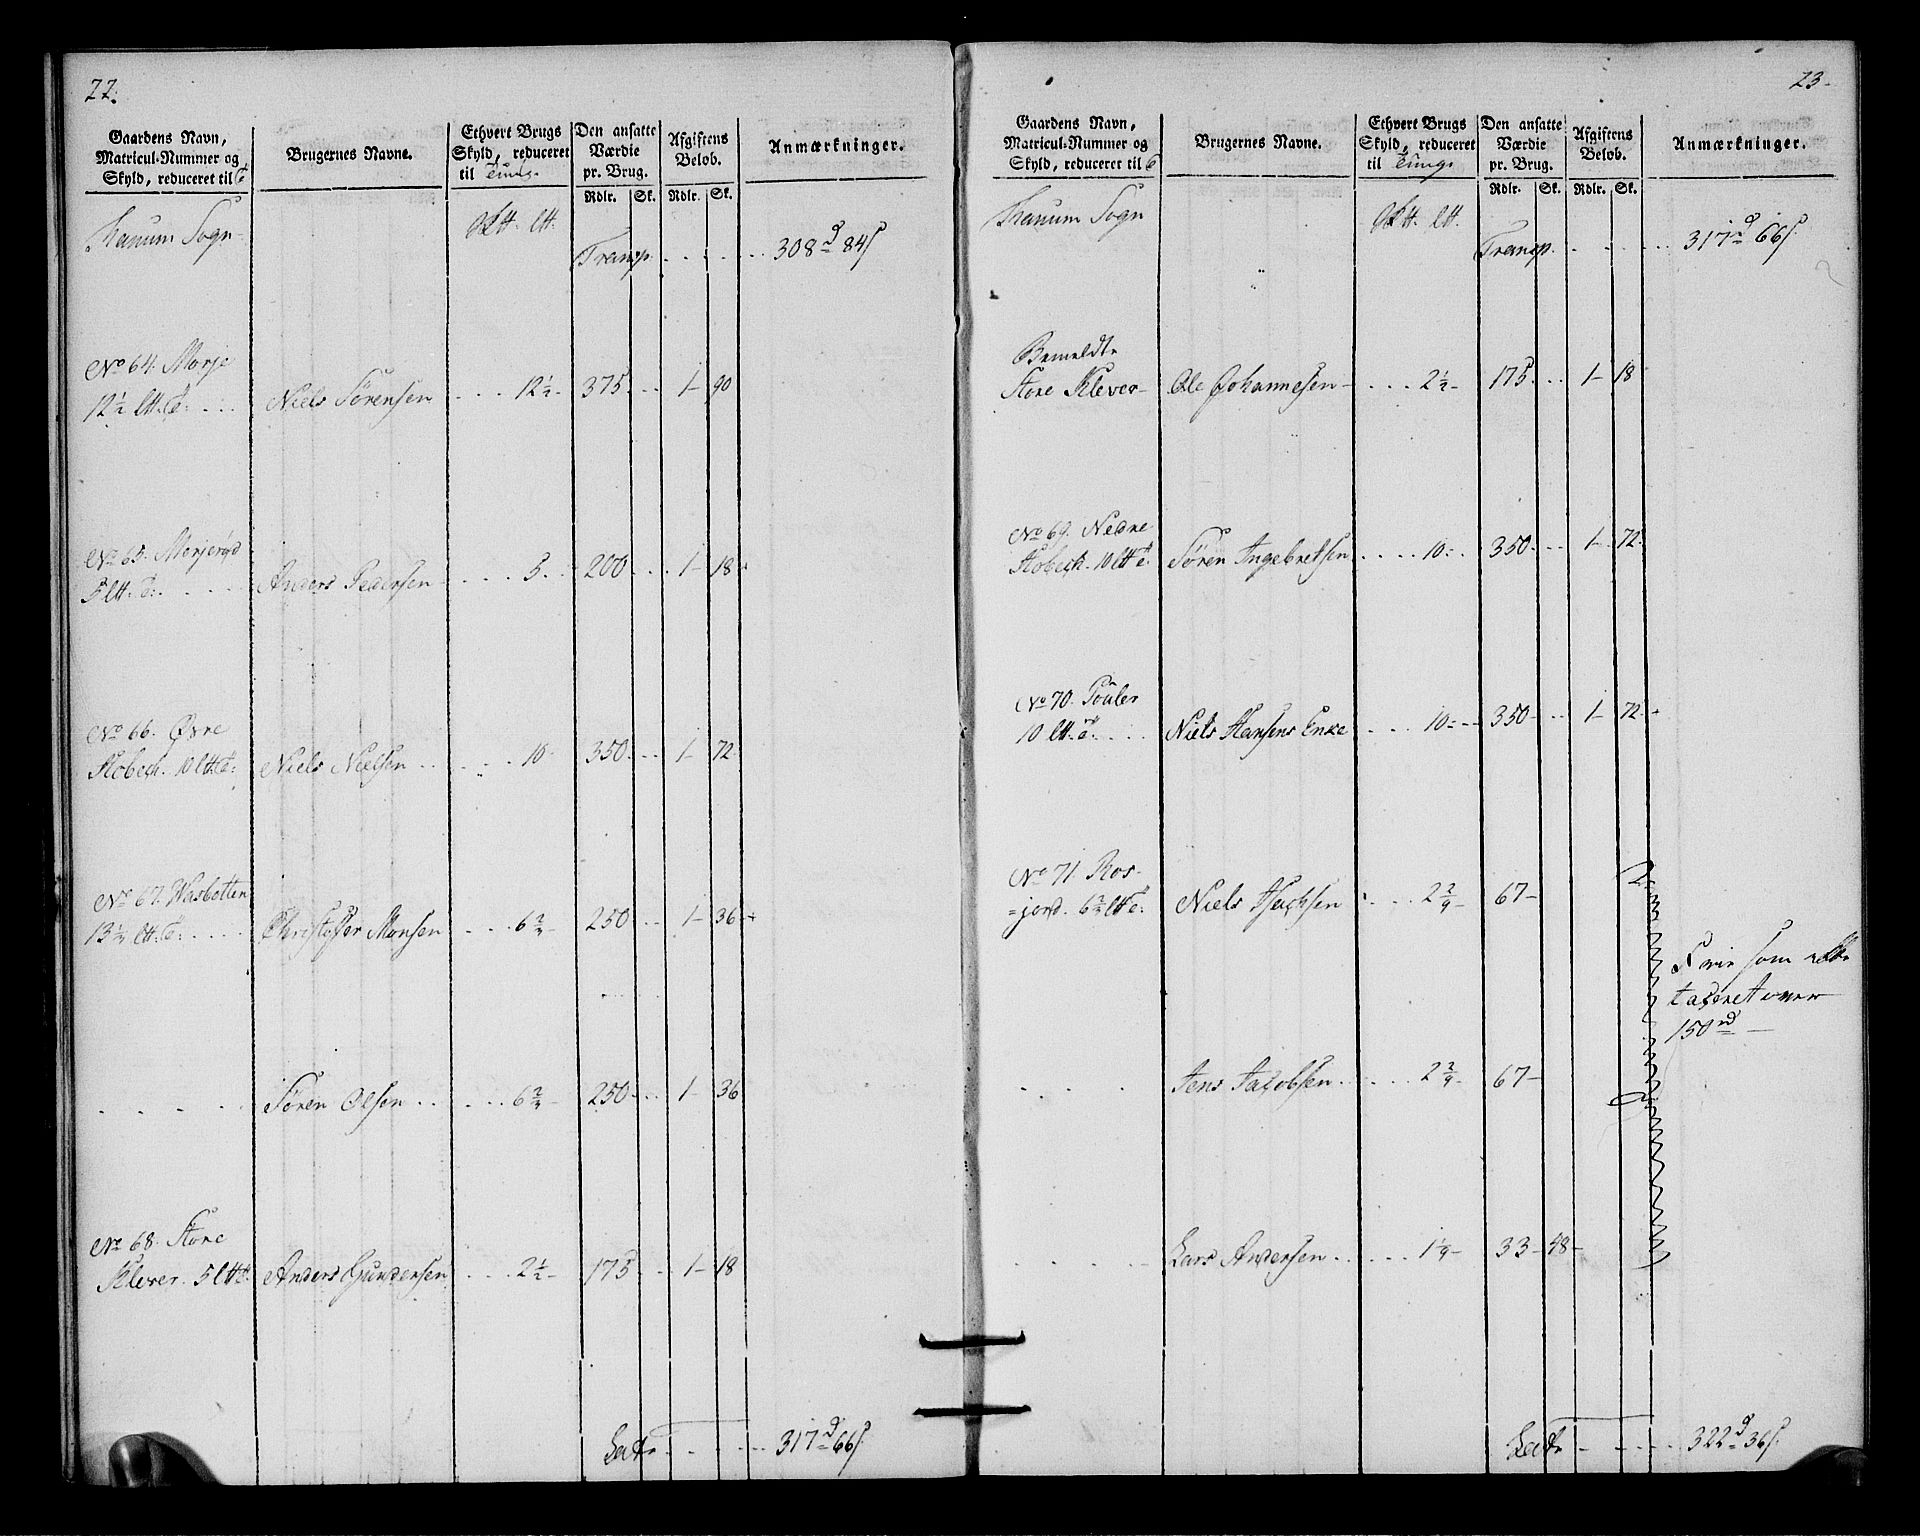 22.
Gaardens Navn, Matricul-Nummer og Skyld, reduceret til T
Brugernes Navne.
Ethvert Brugs Skyld, reduceret til Tunge
Den ansatte Værdie pr. Brug.
Afgiftens Beløb.
Anmærkninger.
Rdlr. Sk. Rdlr. Sk.
Tranum Sogn
Transp. . . . . . 308 d 84 s
No 64. Morje
12½ ltt. T: . . . Niels Sörensen . . . 12½ - 375 . . 1 - 90
No 65. Morjeröd
5 ltt. T: . . . . Anders Pedersen . . . 5 . . 200 . . . 1 - 18
No 66. Øvre
Stobech. 10 ltt. T: Niels Nielsen . . . . 10 - 350 . . . 1 - 72
No 67. Wasbotten
13⅓ ltt. T: . . . Christoffer Monsen . . . 6⅔ - 250 . . . 1 - 36
. . . . Sören Olsen . . . . . 6⅔ - 250 . . . 1 - 36
No 68. Store
Klever. 5 ltt T. Anders Gundersen . . . 2½ - 175 . . 1 - 18
Latr . . . . 317 d 66 s
23.
Gaardens Navn, Matricul-Nummer og Skyld, reduceret til T
Brugernes Navne.
Ethvert Brugs Skyld, reduceret til Tunge
Den ansatte Værdie pr. Brug.
Afgiftens Beløb.
Anmærkninger.
Rdlr. Sk. Rdlr. Sk.
Tranum Sogn
Transp. . . . . . 317 d 66 s.
Bemeldte
Store Klever - Ole Johannesen - . . . . 2½ - 175 . . 1 - 18
No 69. Nedre
Stobech. 10 ltt T: Sören Ingebretsen . . . . 10 - . 350 - . . 1 - 72
No 70. Pouler
10 ltt. T: . . . Niels Hansens Enke . . . 10 - - 350 - . . 1 - 72
No 71 Ros-
=jord. 6⅔ ltt T: Niels Isachsen . . . 2 2/9 - 67 -
Fri som
taxeret under
150 rd
. . . Jens Jacobsen . . . . . 2 2/9 - 67 -
. . . . Lars Andersen . . . . . 1 1/9 - 33 - 48 -
Latr . . . . . 322 d 36 s.